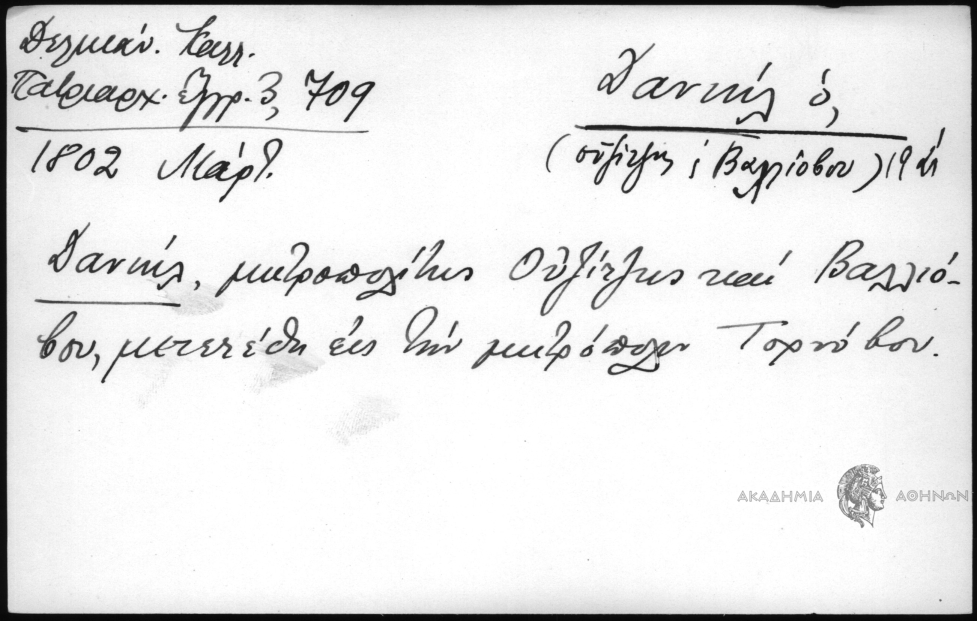 Δελικάν. Καλλ.
Πατριαρχ. έγγρ. 3, 709
1802 Μάρτ.
Δανιήλ ὁ,
(Οὐζίτζης & Βαλλιόβου) 19
Δανιήλ, μητροπολίτης Οὐζίτζης καί Βαλλιό-
βου, μετετέθη εἰς τήν μητρόπολιν Τορνόβου.
ΑΚΑΔΗΜΙΑ ΑΘΗΝΩΝ